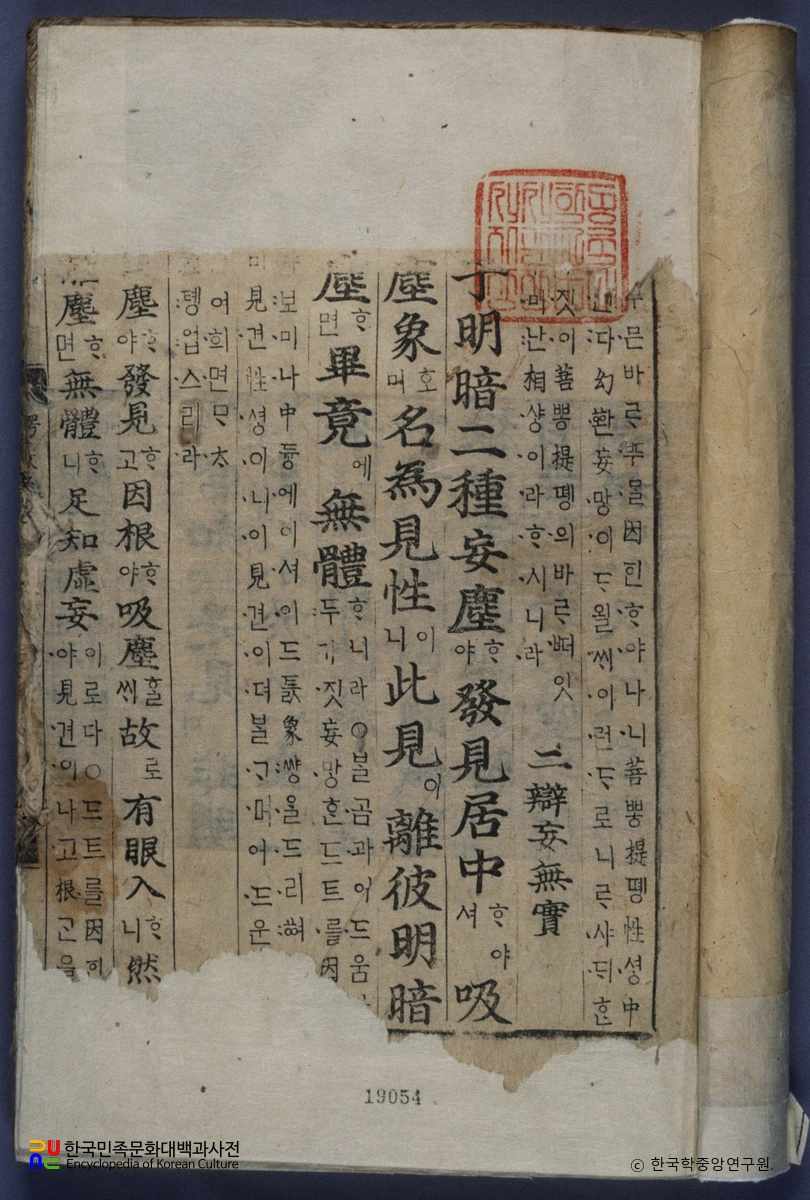 바ᄅᆞ주ᄆᆞᆯ因ᅙᅵᆫᄒᆞ야나니菩뽕提똉性셩中
다幻환妄망이ᄃᆞ욀ᄊᆡ이런ᄃᆞ로니ᄅᆞ샤ᄃᆡᄒᆞᆫ
짓이菩뽕提똉의바ᄅᆞ떠잇
마난相샹이라ᄒᆞ시니라
二辯妄無實
于明暗二種妄塵ᄒᆞ야發見居中ᄒᆞ야셔吸
塵象호미名為見性이니此見이離彼明暗
塵ᄒᆞ면畢竟에無體ᄒᆞ니라○ᄇᆞᆯ곰과어드움
두가짓妄망ᄒᆞᆫ드트를因
보미나中듕에이셔이드틇象썅ᄋᆞᆯ드리혀
見견性셩이니이見견이뎌ᄇᆞᆯ고며어드운
여희면
톙업스리라
塵ᄒᆞ야發見ᄒᆞ고因根ᄒᆞ야吸塵ᄒᆞᆯᄊᆡ故로有眼入ᄒᆞ니然
塵ᄒᆞ면無體ᄒᆞ니足知虛妄이로다○드트를因
야見견이나고根ᄀᆞᆫᄋᆞᆯ
19054
한국민족문화대백과사전
Encyclopedia of Korean Culture
ⓒ 한국학중앙연구원.